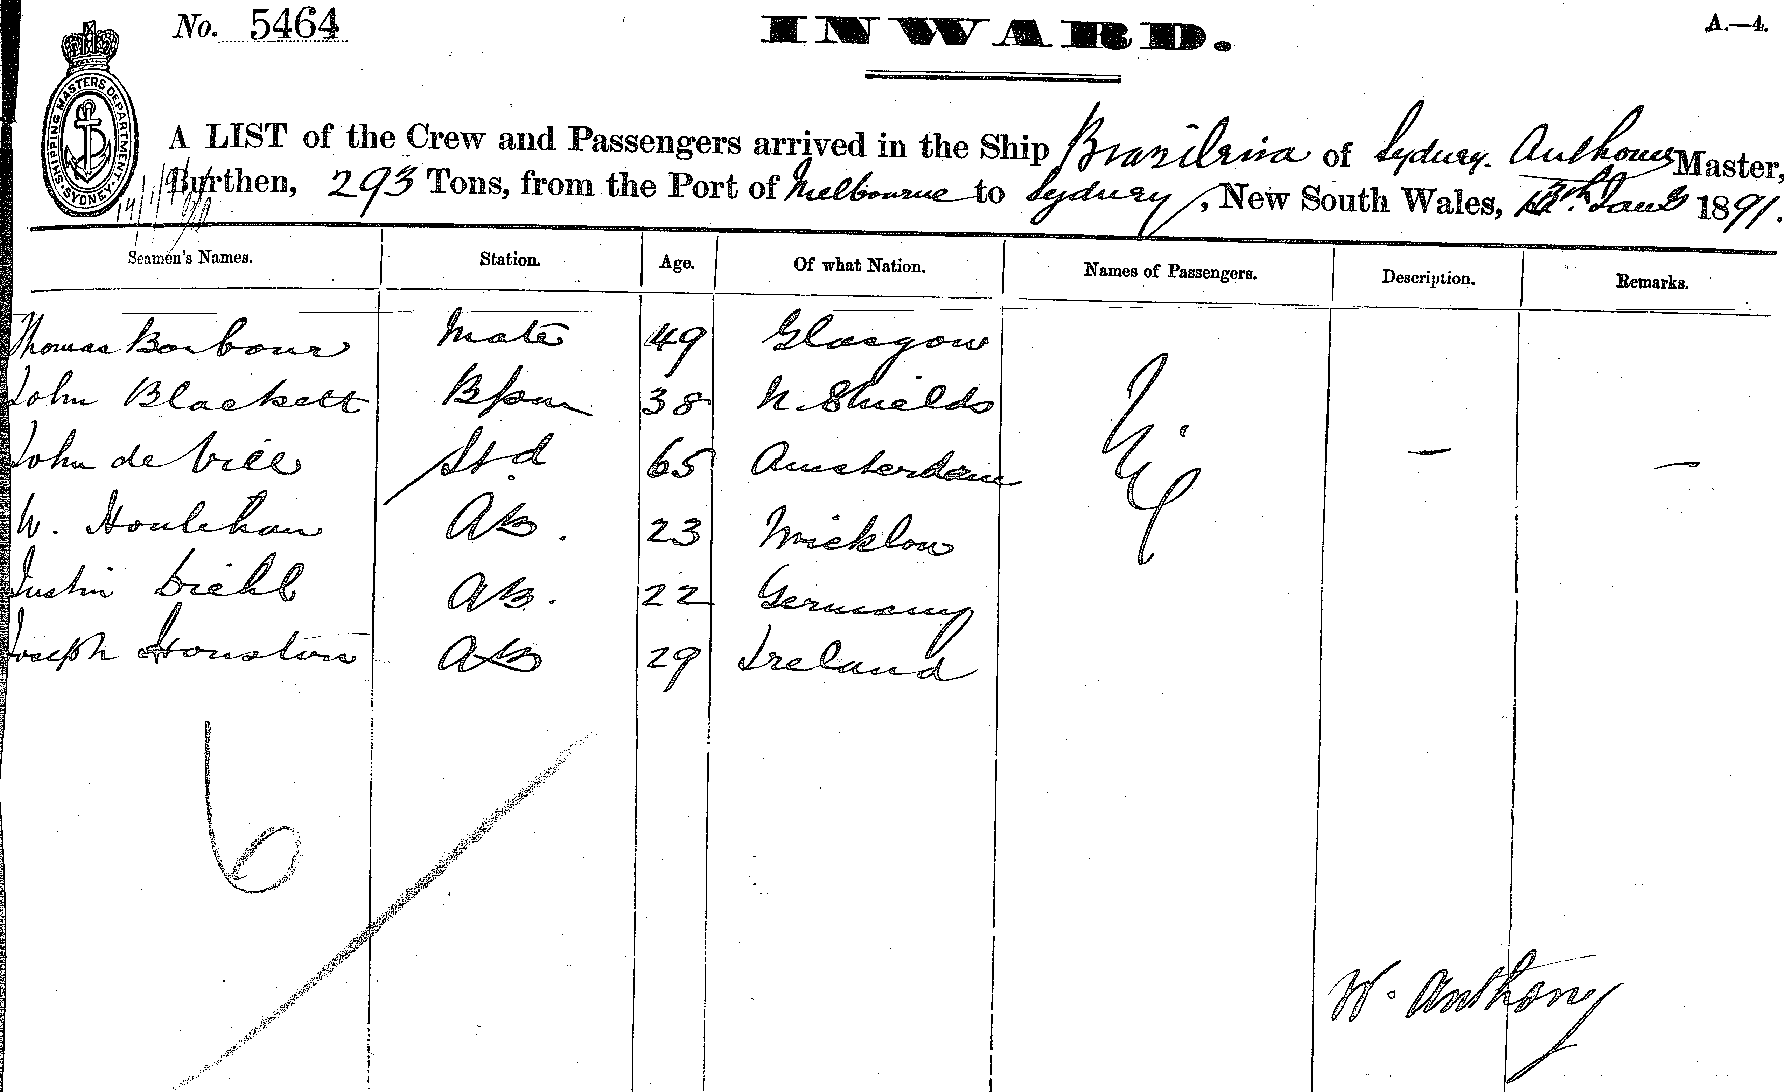 No. 5464
INWARD.
A.—4.
SHIPPING MASTERS DEPARTMENT SYDNEY
A LIST of the Crew and Passengers arrived in the Ship Brazileira of Sydney. Anthony Master,
Burthen, 293 Tons, from the Port of Melbourne to Sydney, New South Wales, 13th Jany 1891.
Seamen's Names. Station. Age. Of what Nation. Names of Passengers. Description. Remarks.
Thomas Barbour Mate 49 Glasgow
John Blackett Bsn 38 N. Shields
John de Vill Std 65 Amsterdam — —
W. Houlihan AB. 23 Wicklow
Justin Diehl AB. 22 Germany
Joseph Houston AB 29 Ireland
6
W. Anthony